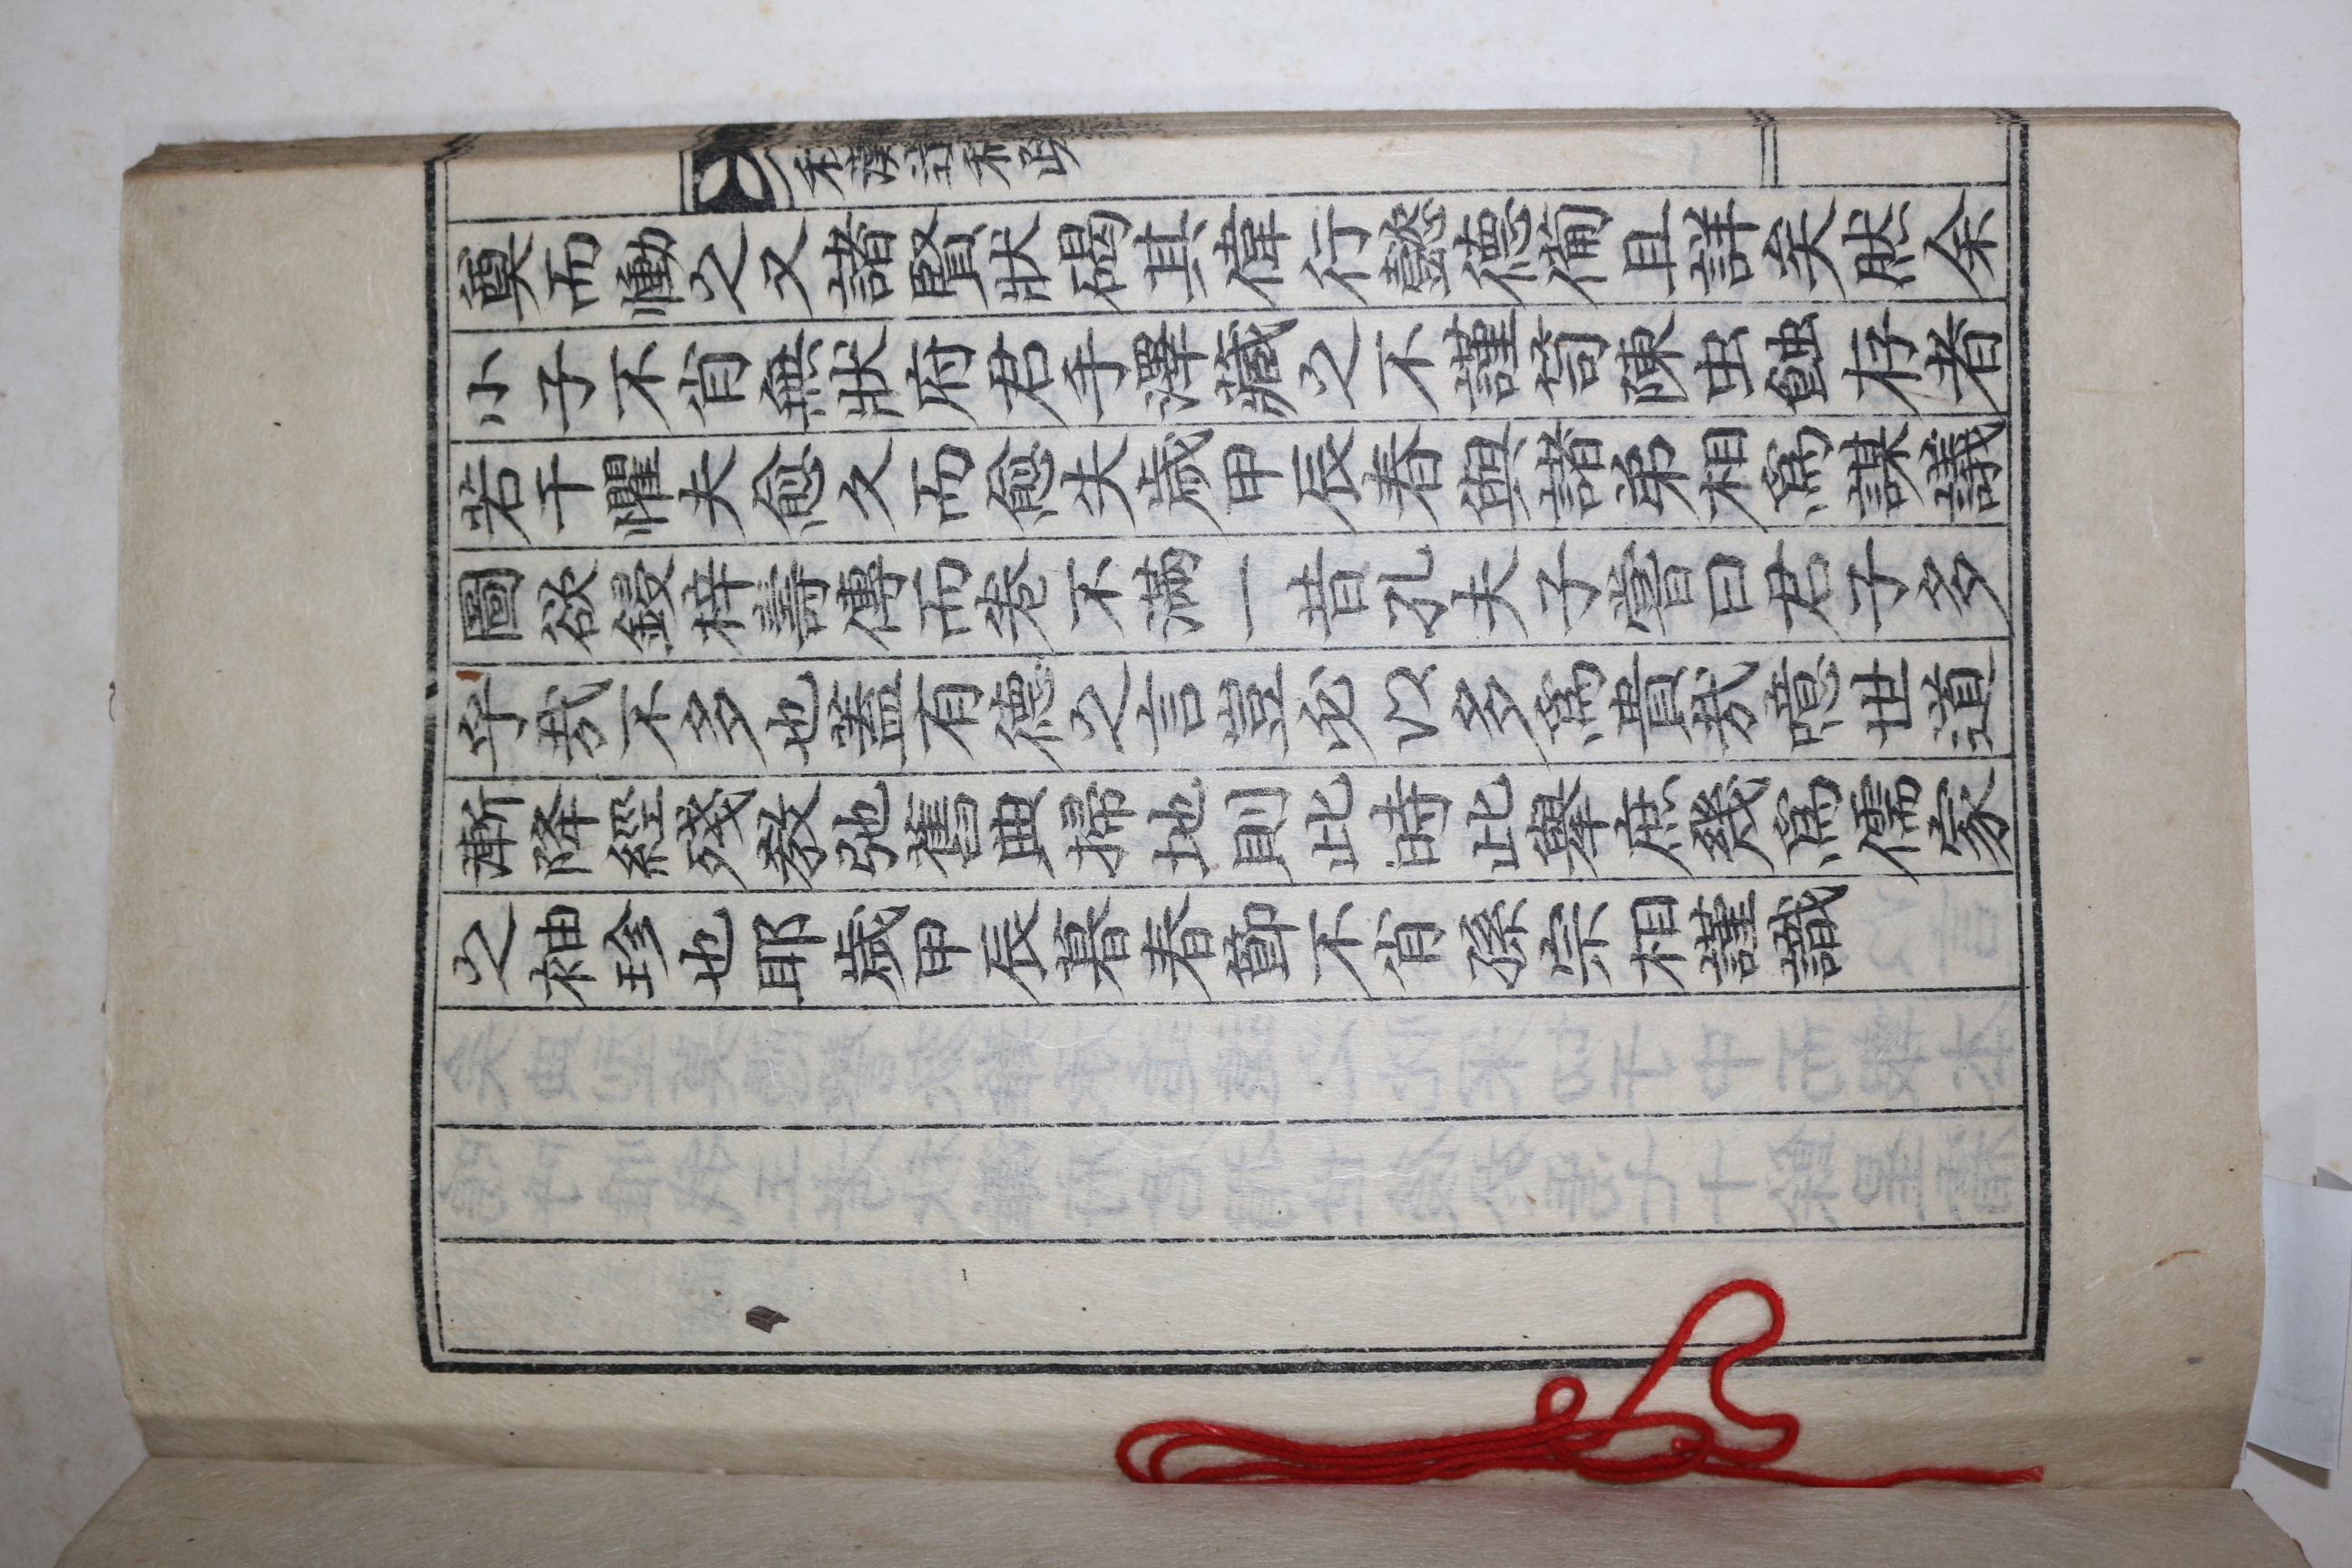 奠而慟之又諸賢狀碣其偉行懿德備且詳矣然余
小子不肖無狀府君手澤藏之不謹笥陳虫蝕存者
若干懼夫愈久而愈失歲甲辰春與諸弟相爲謀議
圖欲鋟梓壽傳而卷不滿一昔孔夫子嘗曰君子多
乎哉不多也蓋有德之言豈必以多爲貴哉噫世道
漸降經殘教弛舊典掃地則此時此擧庶幾爲儒家
之袖珍也耶歲甲辰暮春節不肖孫宗相謹識